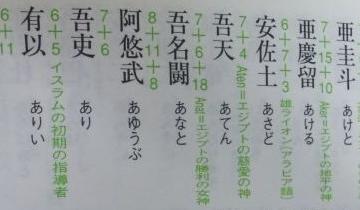 亜圭斗 あけと
7+15+10 Aker=エジプトの地平の神
亜慶留 あける
6+7+3 雄ライオン(アラビア語)
安佐土 あさど
7+4 Aten=エジプトの慈愛の神
吾天 あてん
7+6+18 Anat=エジプトの勝利の女神
吾名闘 あなと
8+11+8
阿悠武 あゆうぶ
7+6
吾吏 あり
6+5 イスラムの初期の指導者
有以 ありい
6+11